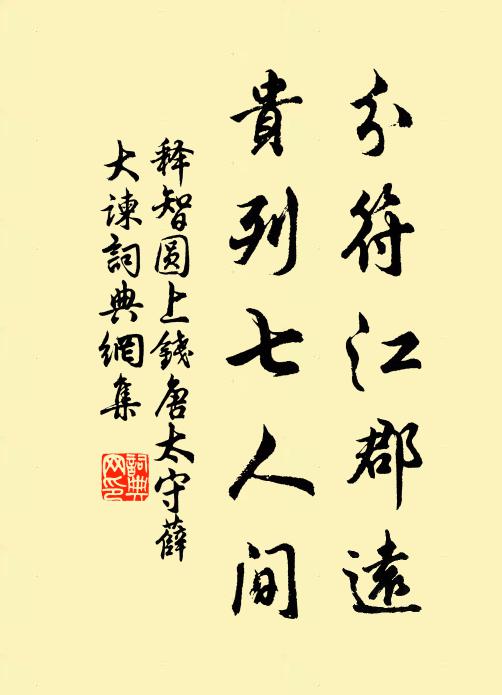 分符江郡遠
貴列七人間
释智圆上錢唐太守薛
大諫詞典網集
詞典網印